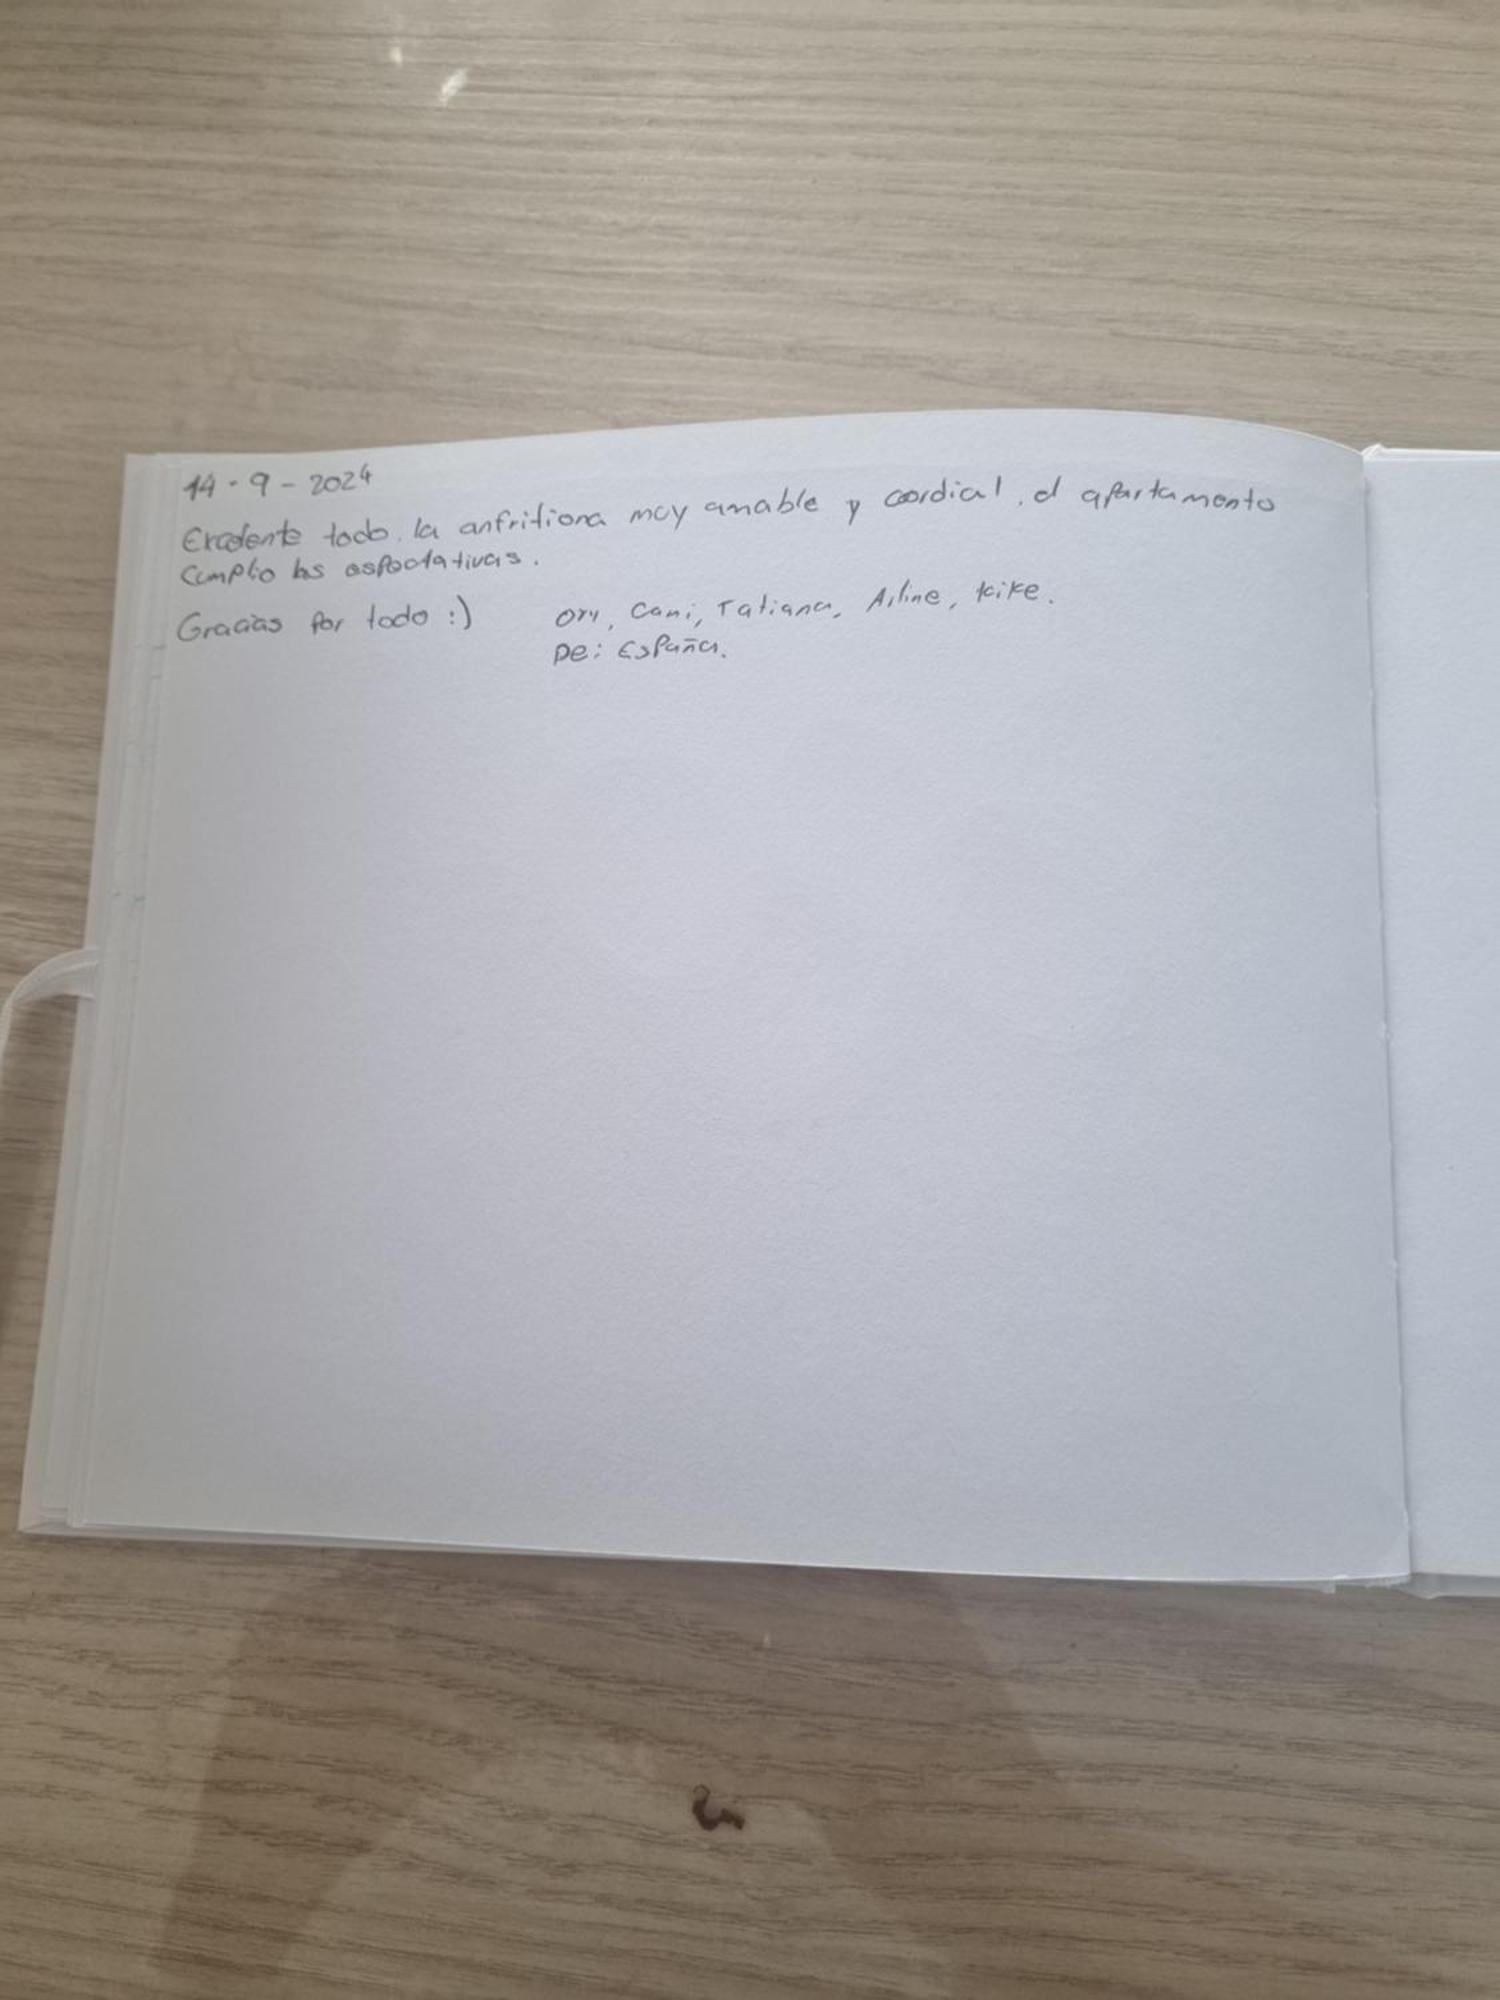 14 - 9 - 2024
Excelente todo, la anfritiona muy amable y cordial, el apartamento
Cumplio las espectativas.
Gracias por todo :) Ory, Cami, Tatiana, Ailine, Kike.
De: España.